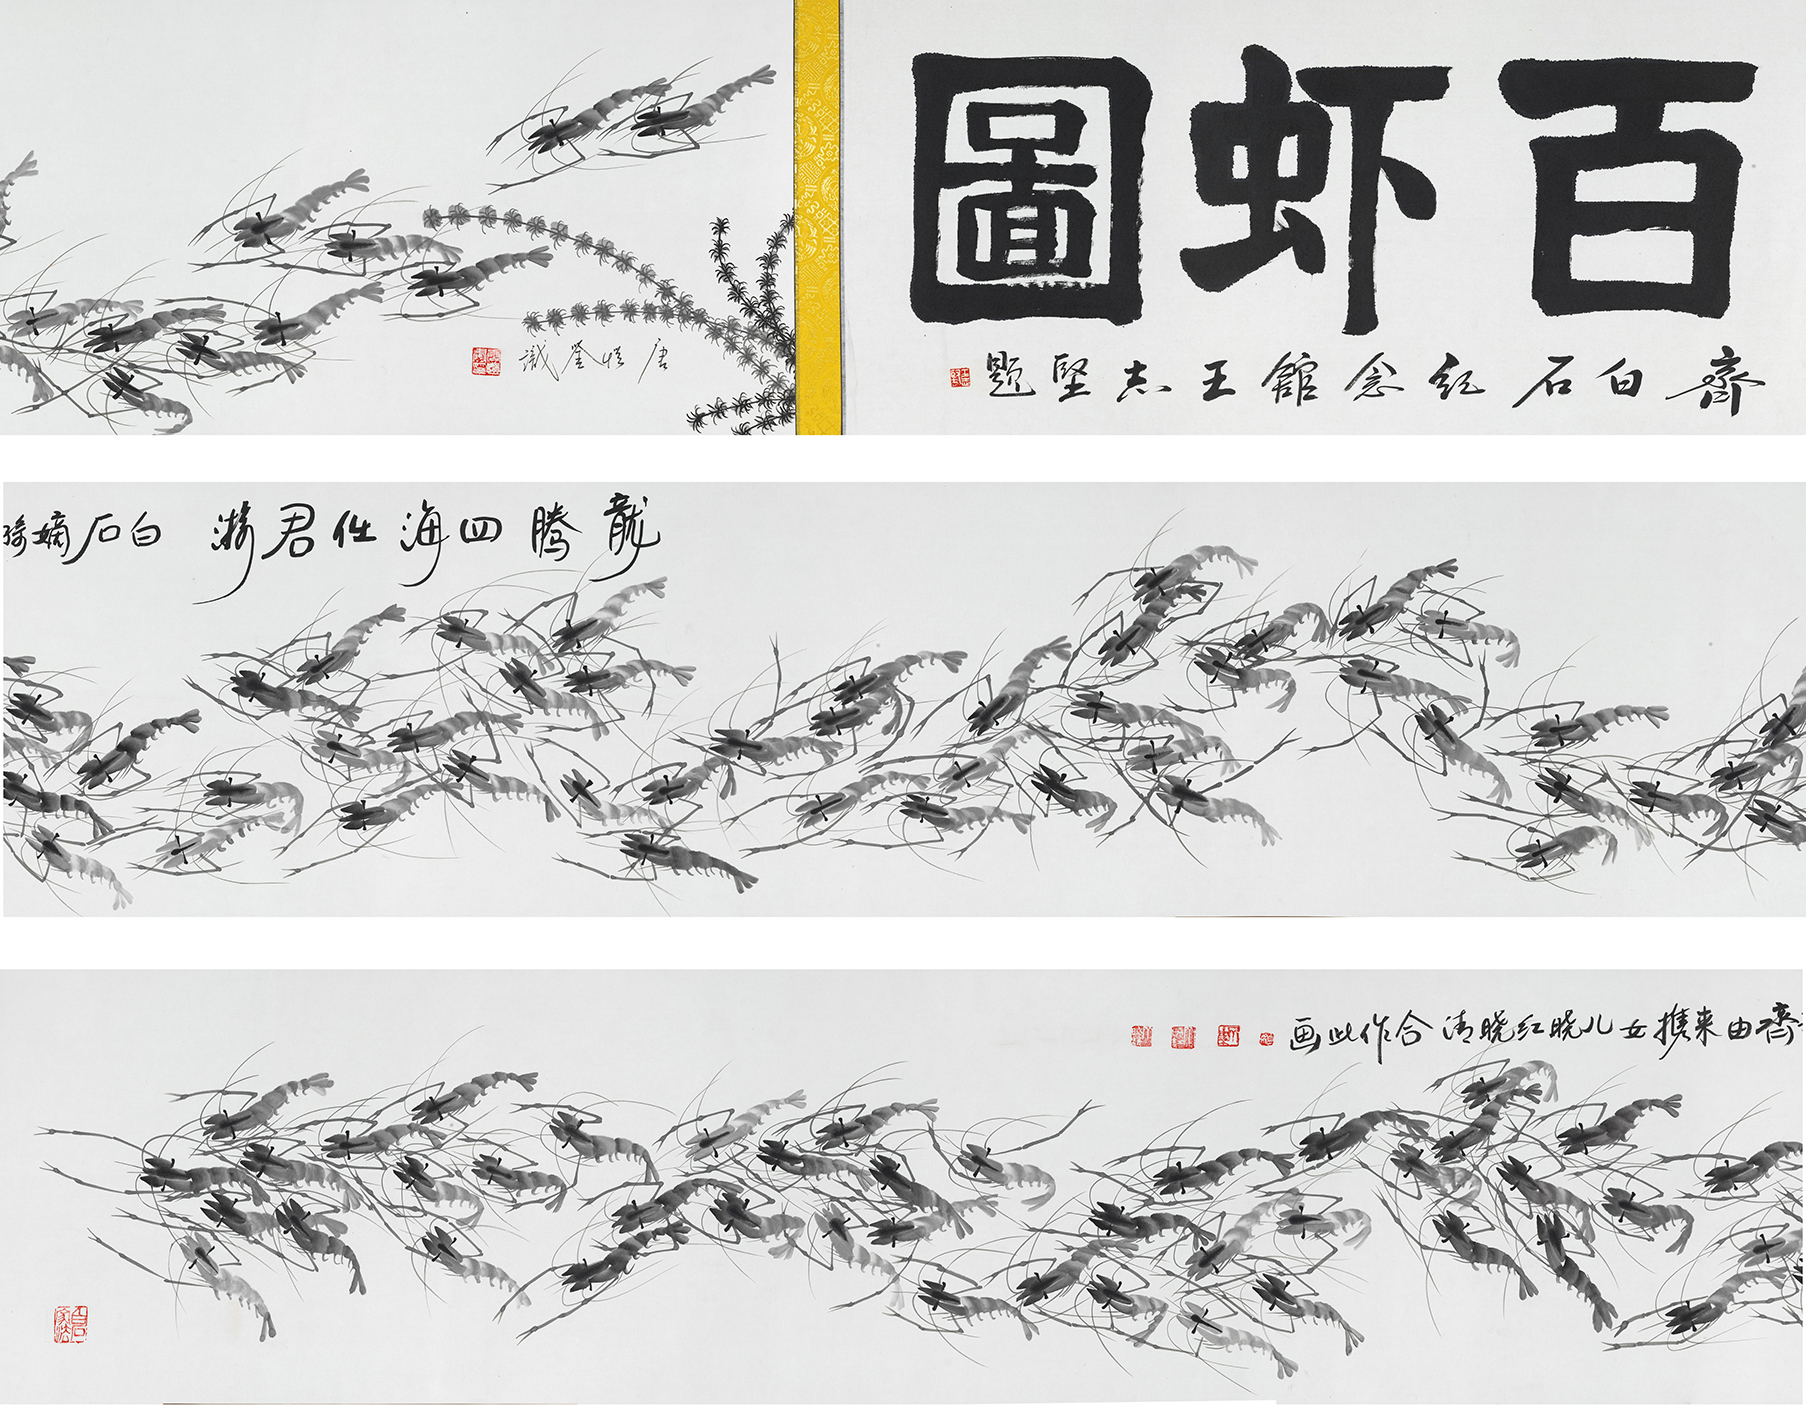 百虾圖
齊白石纪念館王志堅題
龍腾四海任君游 白石嫡孫
齊由来携女儿晓红晓清合作此画